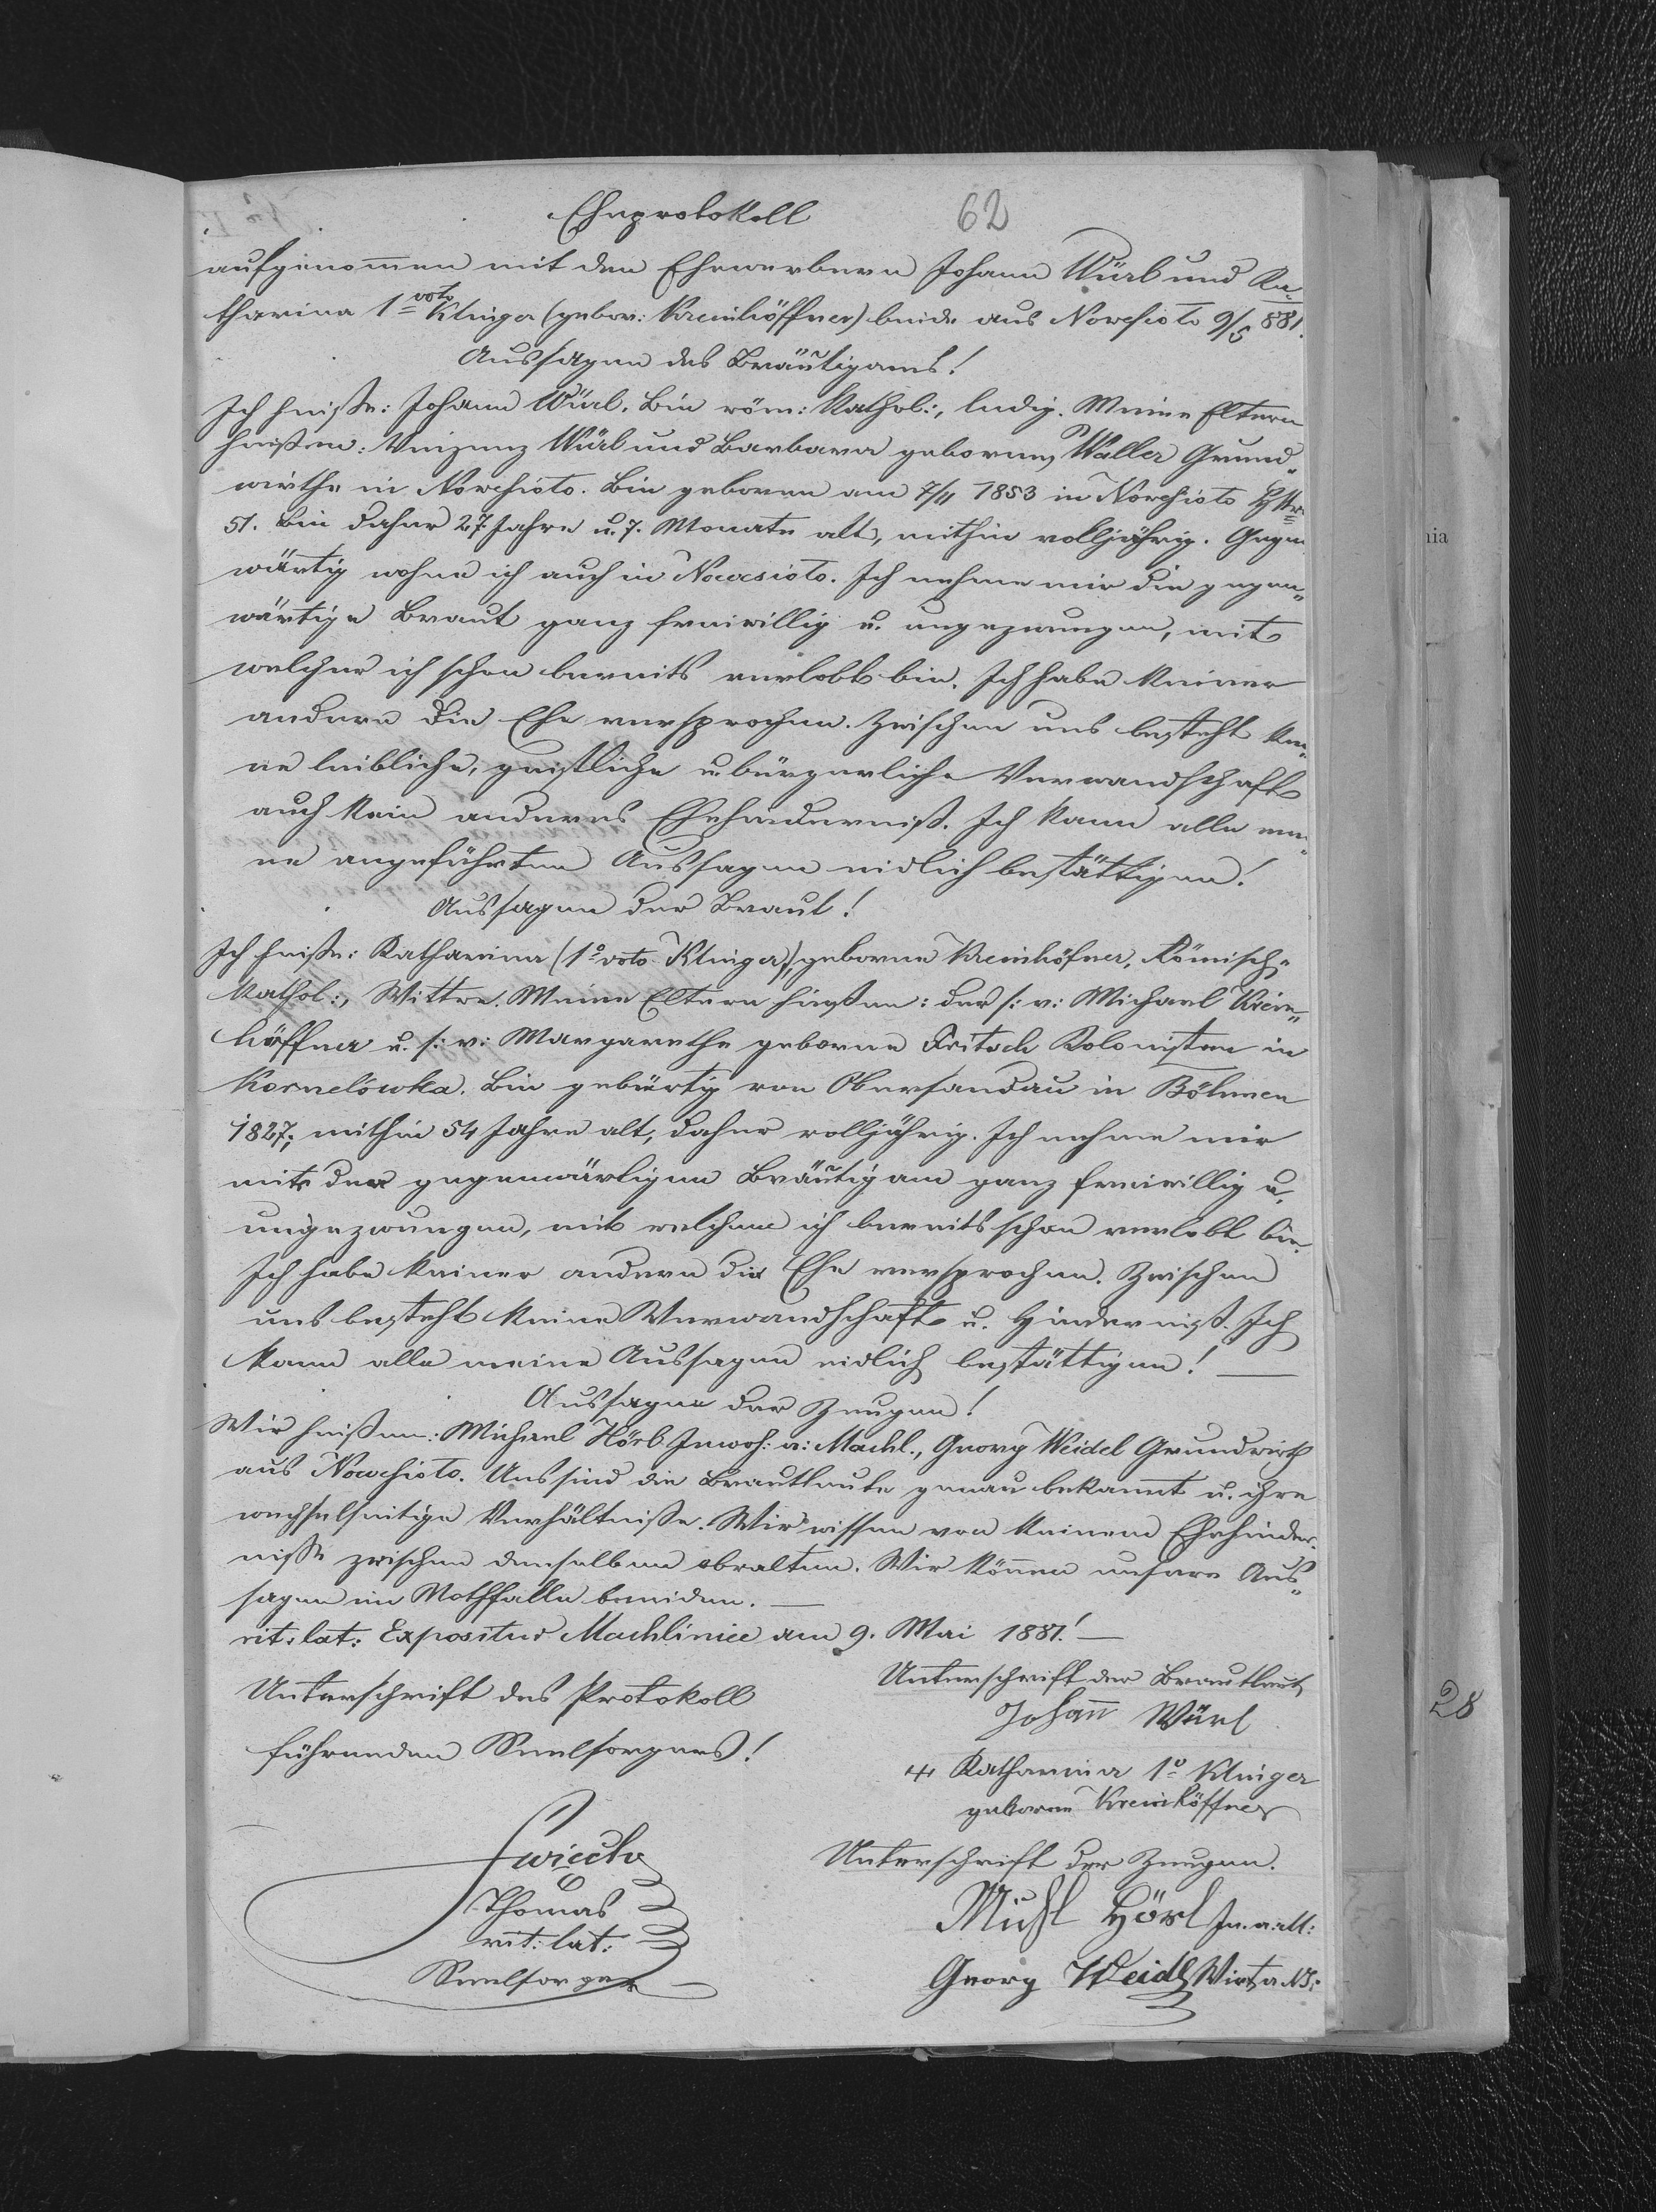 Eheprotokoll 62
aufgenommen mit den Ehewerbern Johann Würl und Ka-
tharina 1º voto Klinger (gebor: Kreinhöffner) beide aus Nowesioto 9/5 881.
Aussagen des Bräutigams!
Ich heiße: Johann Würl. Bin röm: Kathol:, ledig. Meine Eltern
heißen: Vinzenz Würl und Barbara geborene Waller Grund„
wirthe in Nowesioto. Bin geboren am 7/11 1853 in Nowesioto HNr
51. Bin daher 27. Jahre u. 7. Monate alt, mithin volljährig. Gegen
wärtig wohne ich auch in Nowesioto. Ich nehme mir die gegen„
wärtige Braut ganz freiwillig u. ungezwungen, mit
welcher ich schon bereits verlobt bin. Ich habe keiner
andern die Ehe versprochen. Zwischen uns besteht kei„
ne leibliche, geistliche u bürgerliche Verwandschaft
auch kein anderes Ehehinderniß. Ich kann alle mei„
ne angeführten Aussagen eidlich bestättigen!
Aussagen der Braut!
Ich heiße: Katharina (1º voto Klinger), geborene Kreinhöfner, Römisch„
Kathol:, Wittwe. Meine Eltern hießen: der s: v: Michael Krein„
höffner u. s: v: Margarethe geborne Fritsch Kolonisten in
Kornelówka. Bin gebürtig von Obersandau in Böhmen
1827; mithin 54 Jahre alt, daher volljährig. Ich nehme mir
mit den gegenwärtigen Bräutigam ganz freiwillig u.
ungezwungen, mit welchem ich bereits schon verlobt bin.
Ich habe keiner andern die Ehe versprochen. Zwischen
uns besteht keine Verwandschaft u. Hinderniß. Ich
kann alle meine Aussagen eidlich bestättigen! —
Aussagen der Zeugen!
Wir heißen: Michael Hörl Inwoh: a: Machl., Georg Weidel Grundwirth
aus Nowesioto. Uns sind die Brautleute genau bekannt u. ihre
wechselseitige Verhältniße. Wir wissen von keinem Ehehinder-
niße zwischen denselben obwalten. Wir können unsere Aus„
sagen im Nothfalle beeiden. —
rit: lat: Expositur Machliniec am 9. Mai 1881! —
Unterschrift des Protokoll
führenden Seelsorgers!
Swięch
Thomas
rit: lat:
Seelsorger
Unterschrift der Brautleute
Johann Würl
+++ Katharina 1º Klinger
geborene Kreinhöffner
Unterschrift der Zeugen.
Michl Hörl In. a. M:
Georg Weidl Wirt a NS:
nia
28